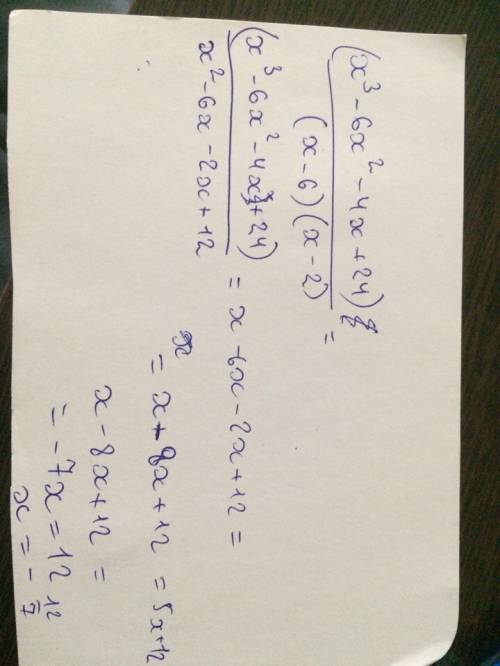 (x³ - 6x² - 4x + 24)
(x - 6)(x - 2) =
(x³ - 6x² - 4x + 24)
x² - 6x - 2x + 12 = x + 6x - 2x + 12 =
= x + 8x + 12 = 5x + 12
x - 8x + 12 =
= -7x = 12
x = - 12/7